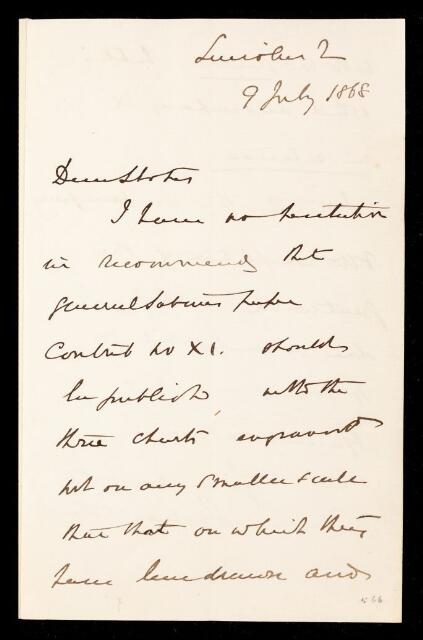 9 July 1868
Dear Stokes
I have no hesitation
in recommending that
General Sabine's paper
Contrib no XI. should
be published with the
three charts engraved
not on any smaller scale
than that on which they
have been drawn and